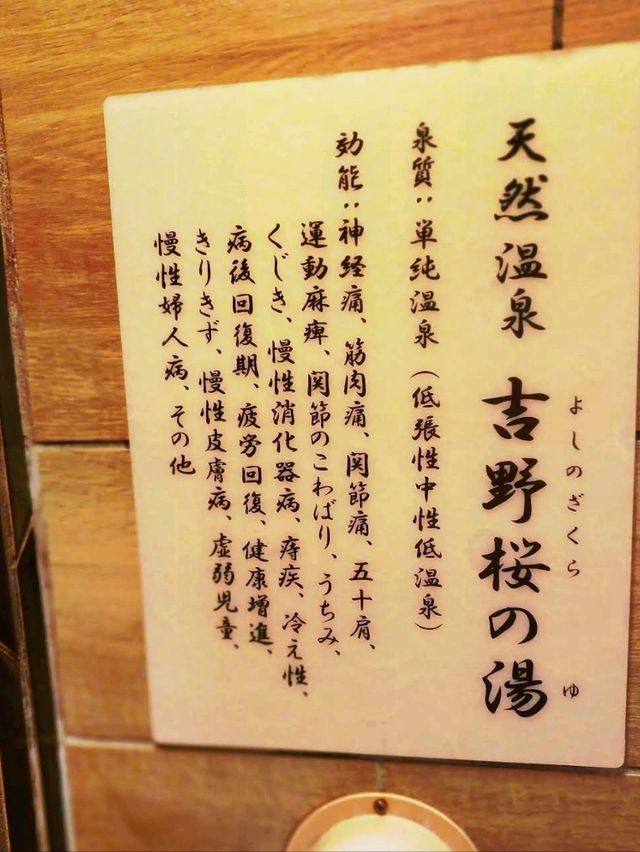 天然温泉 吉野桜の湯
よしのざくら ゆ
泉質：単純温泉（低張性中性低温泉）
効能：神経痛、筋肉痛、関節痛、五十肩、
運動麻痺、関節のこわばり、うちみ、
くじき、慢性消化器病、痔疾、冷え性、
病後回復期、疲労回復、健康増進、
きりきず、慢性皮膚病、虚弱児童、
慢性婦人病、その他